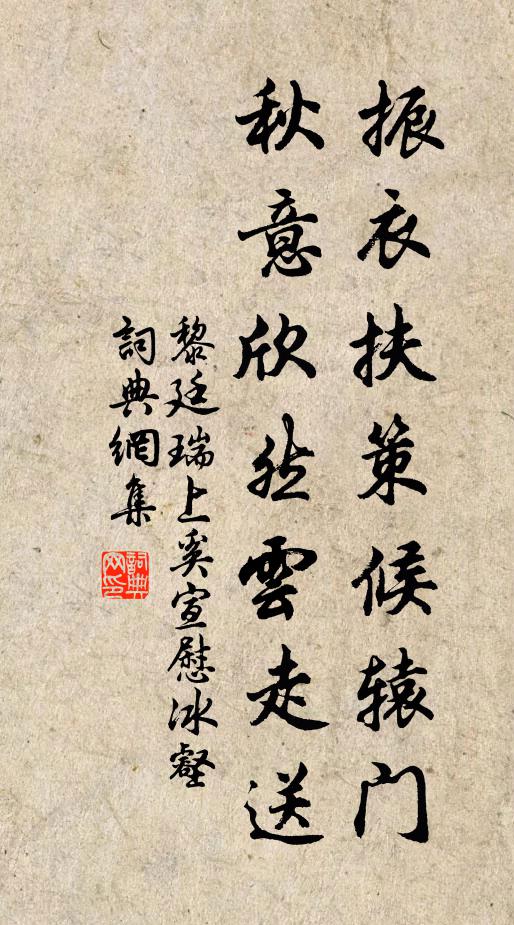 振衣扶策候辕门
秋意欣然雲走送
黎廷瑞上奚宣慰冰壑
詞典網集
詞典网印